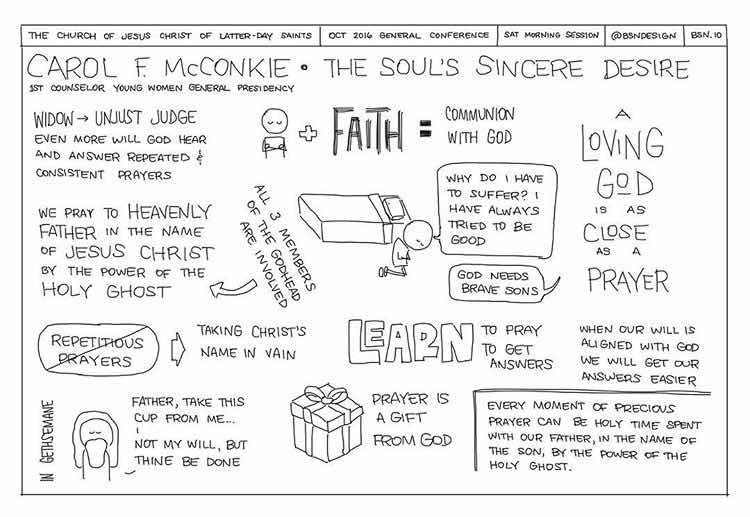 THE CHURCH OF JESUS CHRIST OF LATTER-DAY SAINTS
OCT 2016 GENERAL CONFERENCE
SAT MORNING SESSION
@BSNDESIGN
BSN.10
CAROL F. McCONKIE • THE SOUL'S SINCERE DESIRE
1ST COUNSELOR YOUNG WOMEN GENERAL PRESIDENCY
WIDOW → UNJUST JUDGE
EVEN MORE WILL GOD HEAR
AND ANSWER REPEATED &
CONSISTENT PRAYERS
+ FAITH =
COMMUNION
WITH GOD
A
LOVING
GOD
IS AS
CLOSE
AS A
PRAYER
WE PRAY TO HEAVENLY
FATHER IN THE NAME
OF JESUS CHRIST
BY THE POWER OF THE
HOLY GHOST
ALL 3 MEMBERS
OF THE GODHEAD
ARE INVOLVED
WHY DO I HAVE
TO SUFFER? I
HAVE ALWAYS
TRIED TO BE
GOOD
GOD NEEDS
BRAVE SONS
REPETITIOUS
PRAYERS
TAKING CHRIST'S
NAME IN VAIN
LEARN
TO PRAY
TO GET
ANSWERS
WHEN OUR WILL IS
ALIGNED WITH GOD
WE WILL GET OUR
ANSWERS EASIER
IN GETHSEMANE
FATHER, TAKE THIS
CUP FROM ME...
NOT MY WILL, BUT
THINE BE DONE
PRAYER IS
A GIFT
FROM GOD
EVERY MOMENT OF PRECIOUS
PRAYER CAN BE HOLY TIME SPENT
WITH OUR FATHER, IN THE NAME OF
THE SON, BY THE POWER OF THE
HOLY GHOST.